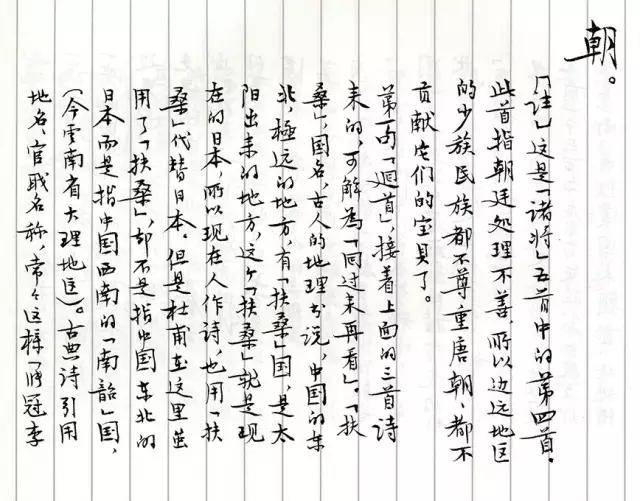 朝。
「註」这是「诸将」五首中的第四首。
此首指朝廷处理不善，所以边远地区
的少族民族都不尊重唐朝，都不
贡献它们的宝贝了。
第一句「迴首」，接着上面的三首诗
来的，可解為「回过来再看」。「扶
桑」，国名，古人的地理书说，中国的东
北，極远的地方，有「扶桑」国，是太
阳出来的地方，这个「扶桑」就是现
在的日本，所以现在人作诗，也用「扶
桑」代替日本。但是杜甫在这里虽
用了「扶桑」，却不是指中国东北的
日本而是指中国西南的「南韶」国，
（今雲南省大理地区）。古典诗引用
地名、官职名称，常々这样「张冠李